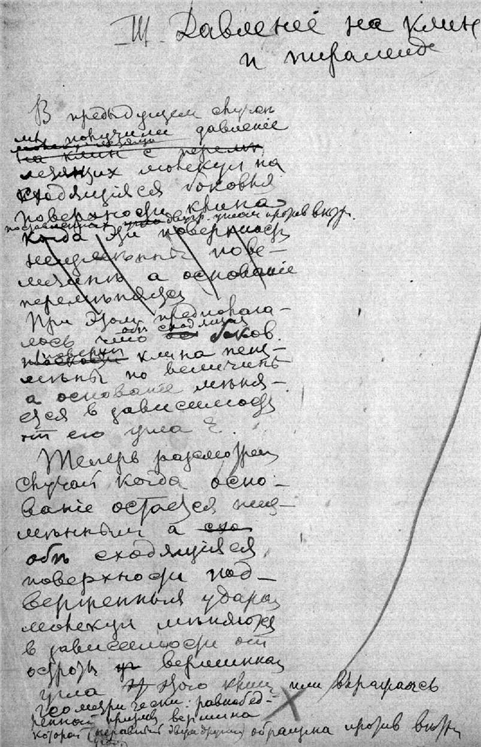 III. Давленіе на клин
и пирамиде
В предыдущем случаи
мы получили давленіе
на клин с перем
молекул на
сходящіяся боковыя
поверхности клина
когда эти поверхности
неизменны по ве-
личине а основаніе
переменяется
При этом предполага-
лось что обе сходящіяся боков.
поверхн клина неиз-
менны по величине
а основаніе меня-
ется в зависимости
от его угла
Теперь разсмотрем
случай когда осно-
ваніе остается неиз-
менным а схо
обе сходящіяся
поверхности под-
верженныя ударам
молекул меняются
в зависимости от
остроты вершинная
угла этого клина или выражаясь
геометрически: равнобед-
ренной призмы вершина
которой обращена против внеш